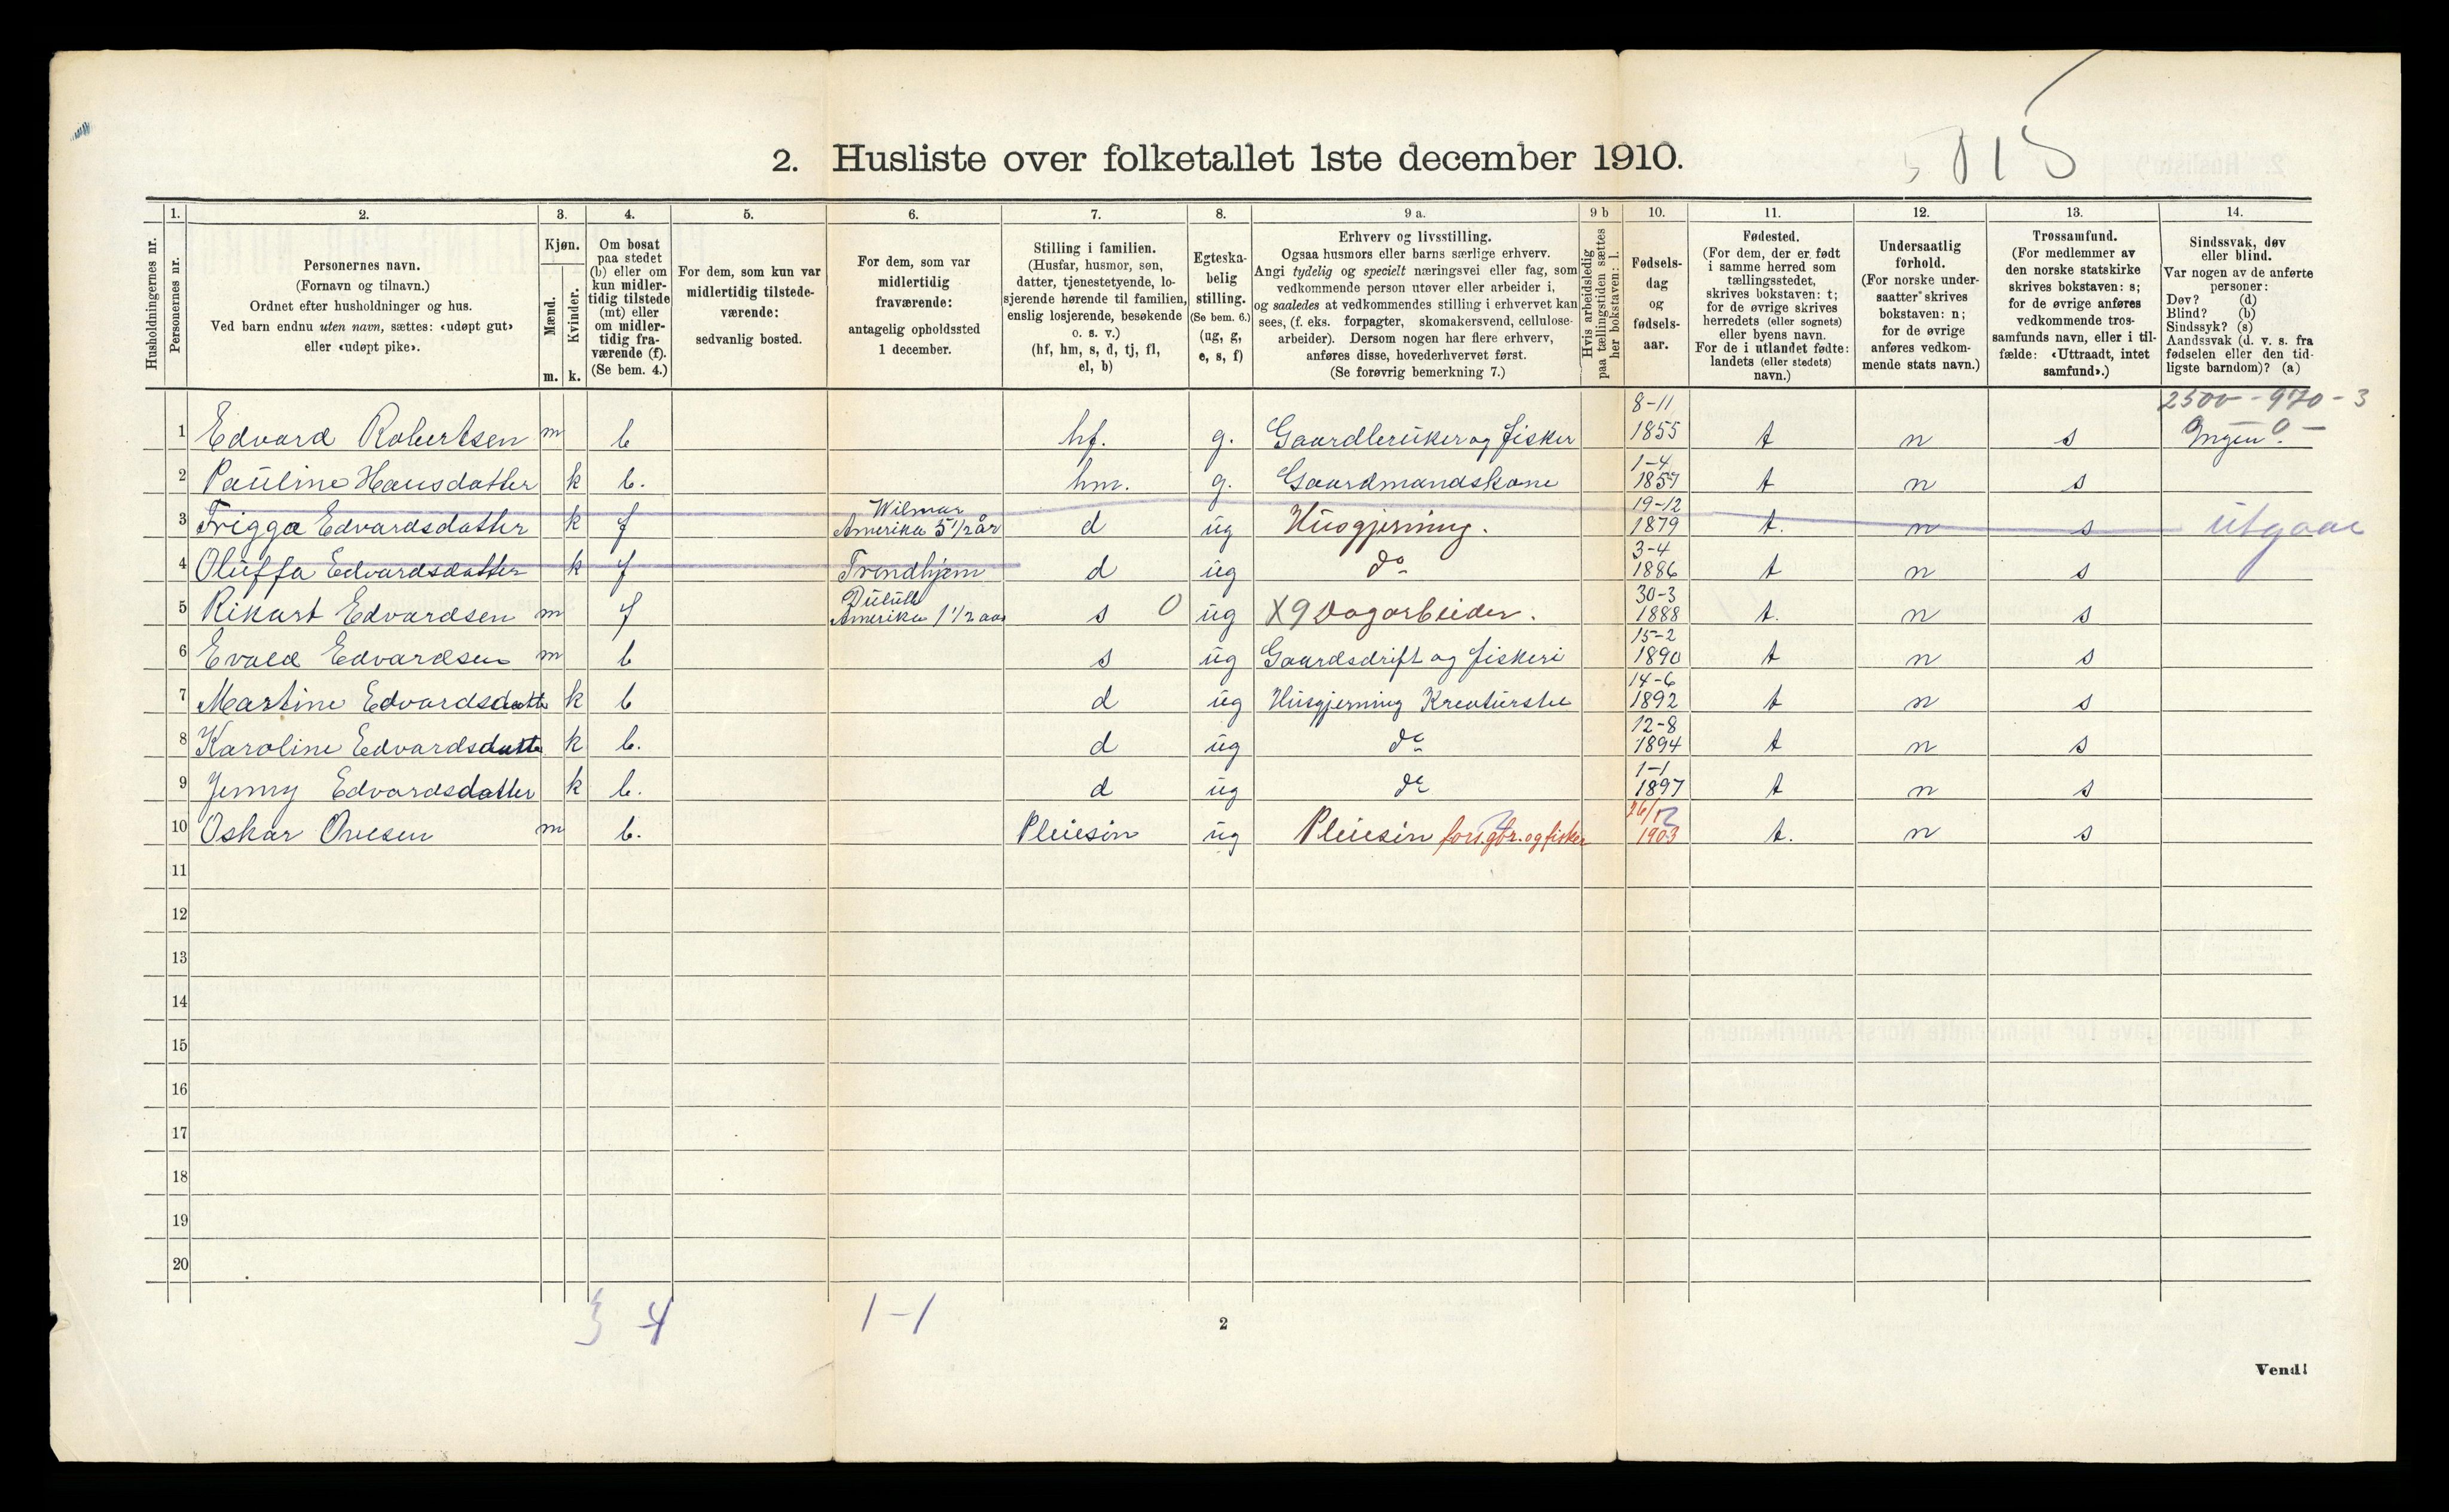 2. Husliste over folketallet 1ste december 1910.
Husholdningernes nr.
1. Personernes nr.
2.
Personernes navn.
(Fornavn og tilnavn.)
Ordnet efter husholdninger og hus.
Ved barn endnu uten navn, sættes: «udøpt gut»
eller «udøpt pike».
3.
Kjøn.
Mænd.
Kvinder.
m. k.
4.
Om bosat
paa stedet
(b) eller om
kun midler-
tidig tilstede
(mt) eller
om midler-
tidig fra-
værende (f).
(Se bem. 4.)
5.
For dem, som kun var
midlertidig tilstede-
værende:
sedvanlig bosted.
6.
For dem, som var
midlertidig
fraværende:
antagelig opholdssted
1 december.
7.
Stilling i familien.
(Husfar, husmor, søn,
datter, tjenestetyende, lo-
sjerende hørende til familien,
enslig losjerende, besøkende
o. s. v.)
(hf, hm, s, d, tj, fl,
el, b)
8.
Egteska-
belig
stilling.
(Se bem. 6.)
(ug, g,
e, s, f)
9 a.
Erhverv og livsstilling.
Ogsaa husmors eller barns særlige erhverv.
Angi tydelig og specielt næringsvei eller fag, som
vedkommende person utøver eller arbeider i,
og saaledes at vedkommendes stilling i erhvervet kan
sees, (f. eks. forpagter, skomakersvend, cellulose-
arbeider). Dersom nogen har flere erhverv,
anføres disse, hovederhvervet først.
(Se forøvrig bemerkning 7.)
9 b
Hvis arbeidsledig
paa tællingstiden sættes
her bokstaven: l.
10.
Fødsels-
dag
og
fødsels-
aar.
11.
Fødested.
(For dem, der er født
i samme herred som
tællingsstedet,
skrives bokstaven: t;
for de øvrige skrives
herredets (eller sognets)
eller byens navn.
For de i utlandet fødte:
landets (eller stedets)
navn.)
12.
Undersaatlig
forhold.
(For norske under-
saatter skrives
bokstaven: n;
for de øvrige
anføres vedkom-
mende stats navn.)
13.
Trossamfund.
(For medlemmer av
den norske statskirke
skrives bokstaven: s;
for de øvrige anføres
vedkommende tros-
samfunds navn, eller i til-
fælde: «Uttraadt, intet
samfund».)
14.
Sindssvak, døv
eller blind.
Var nogen av de anførte
personer:
Døv? (d)
Blind? (b)
Sindssyk? (s)
Aandssvak (d. v. s. fra
fødselen eller den tid-
ligste barndom)? (a)
2500 - 970 - 3
1 Edvard Robertsen m b hf. g. Gaardbruker og fisker 8-11 1855 t n s Ingen. 0 -
2 Pauline Hansdatter k b. hm. g. Gaardmandskone 1-4 1857 t n s
3 Frigga Edvardsdatter k f Wilmar Amerika 5 1/2 år d ug Husgjerning. 19-12 1879 t. n s utgaar
4 Oluffa Edvardsdatter k f Trondhjem d ug do 3-4 1886 t n s
5 Rikart Edvardsen m f Duluth Amerika 1 1/2 aar s 0 ug X9 Dagarbeider. 30-3 1888 t. n s
6 Evald Edvardsen m b s ug Gaardsdrift og fiskeri 15-2 1890 t n s
7 Martine Edvardsdatte k b d ug Husgjerning Kreaturstel 14-6 1892 t n s
8 Karoline Edvardsdatte k b. d ug do 12-8 1894 t n s
9 Jenny Edvardsdatter k b. d ug do 1-1 1897 t n s
10 Oskar Ovesen m b. Pleiesøn ug Pleiesøn fors. gbr. og fisker 26/12 1903 t. n s
11
12
13
14
15
16
17
18
19
20
3 4 1-1
2
Vend!